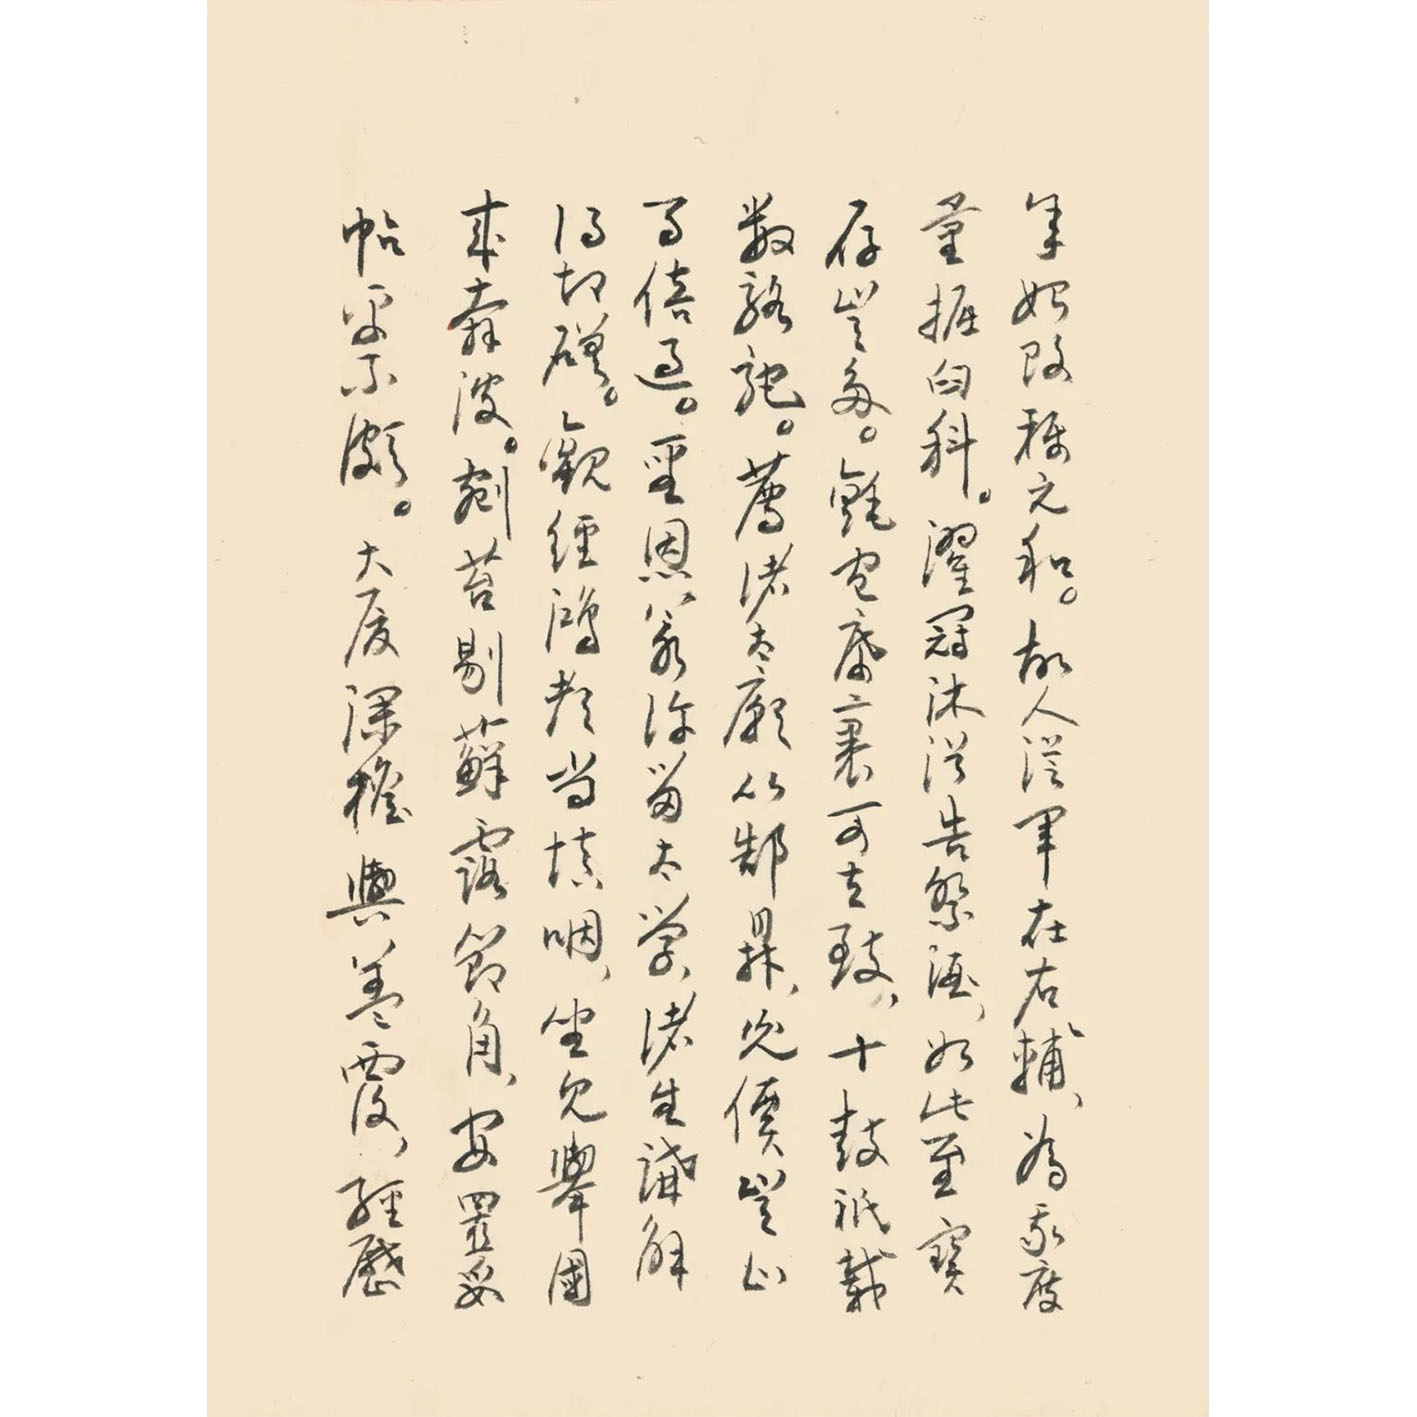 年始改稱元和。故人從軍在右輔、為我度
量掘臼科。濯冠沐浴告祭酒、如此至寶
存豈多。氈包席裹可立致、十鼓祇載
數駱駝。薦諸太廟比郜鼎、光價豈止
百倍過。聖恩若許留太學、諸生講解
得切磋。觀經鴻都尚填咽、坐見舉國
來奔波。剜苔剔蘚露節角、安置妥
帖平不頗。大廈深檐與蓋覆、經歷